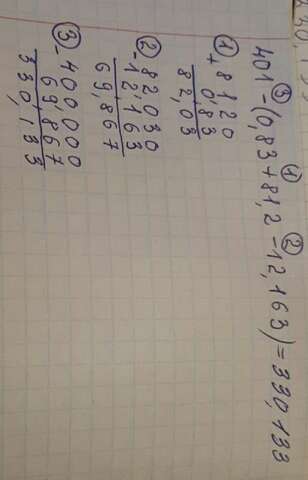 ③ ① ②
401-(0,83+81,2-12,163)=330,133
① + 8120
0,83
82,03
② - 82030
12,163
69,867
③ - 400000
69867
330,133